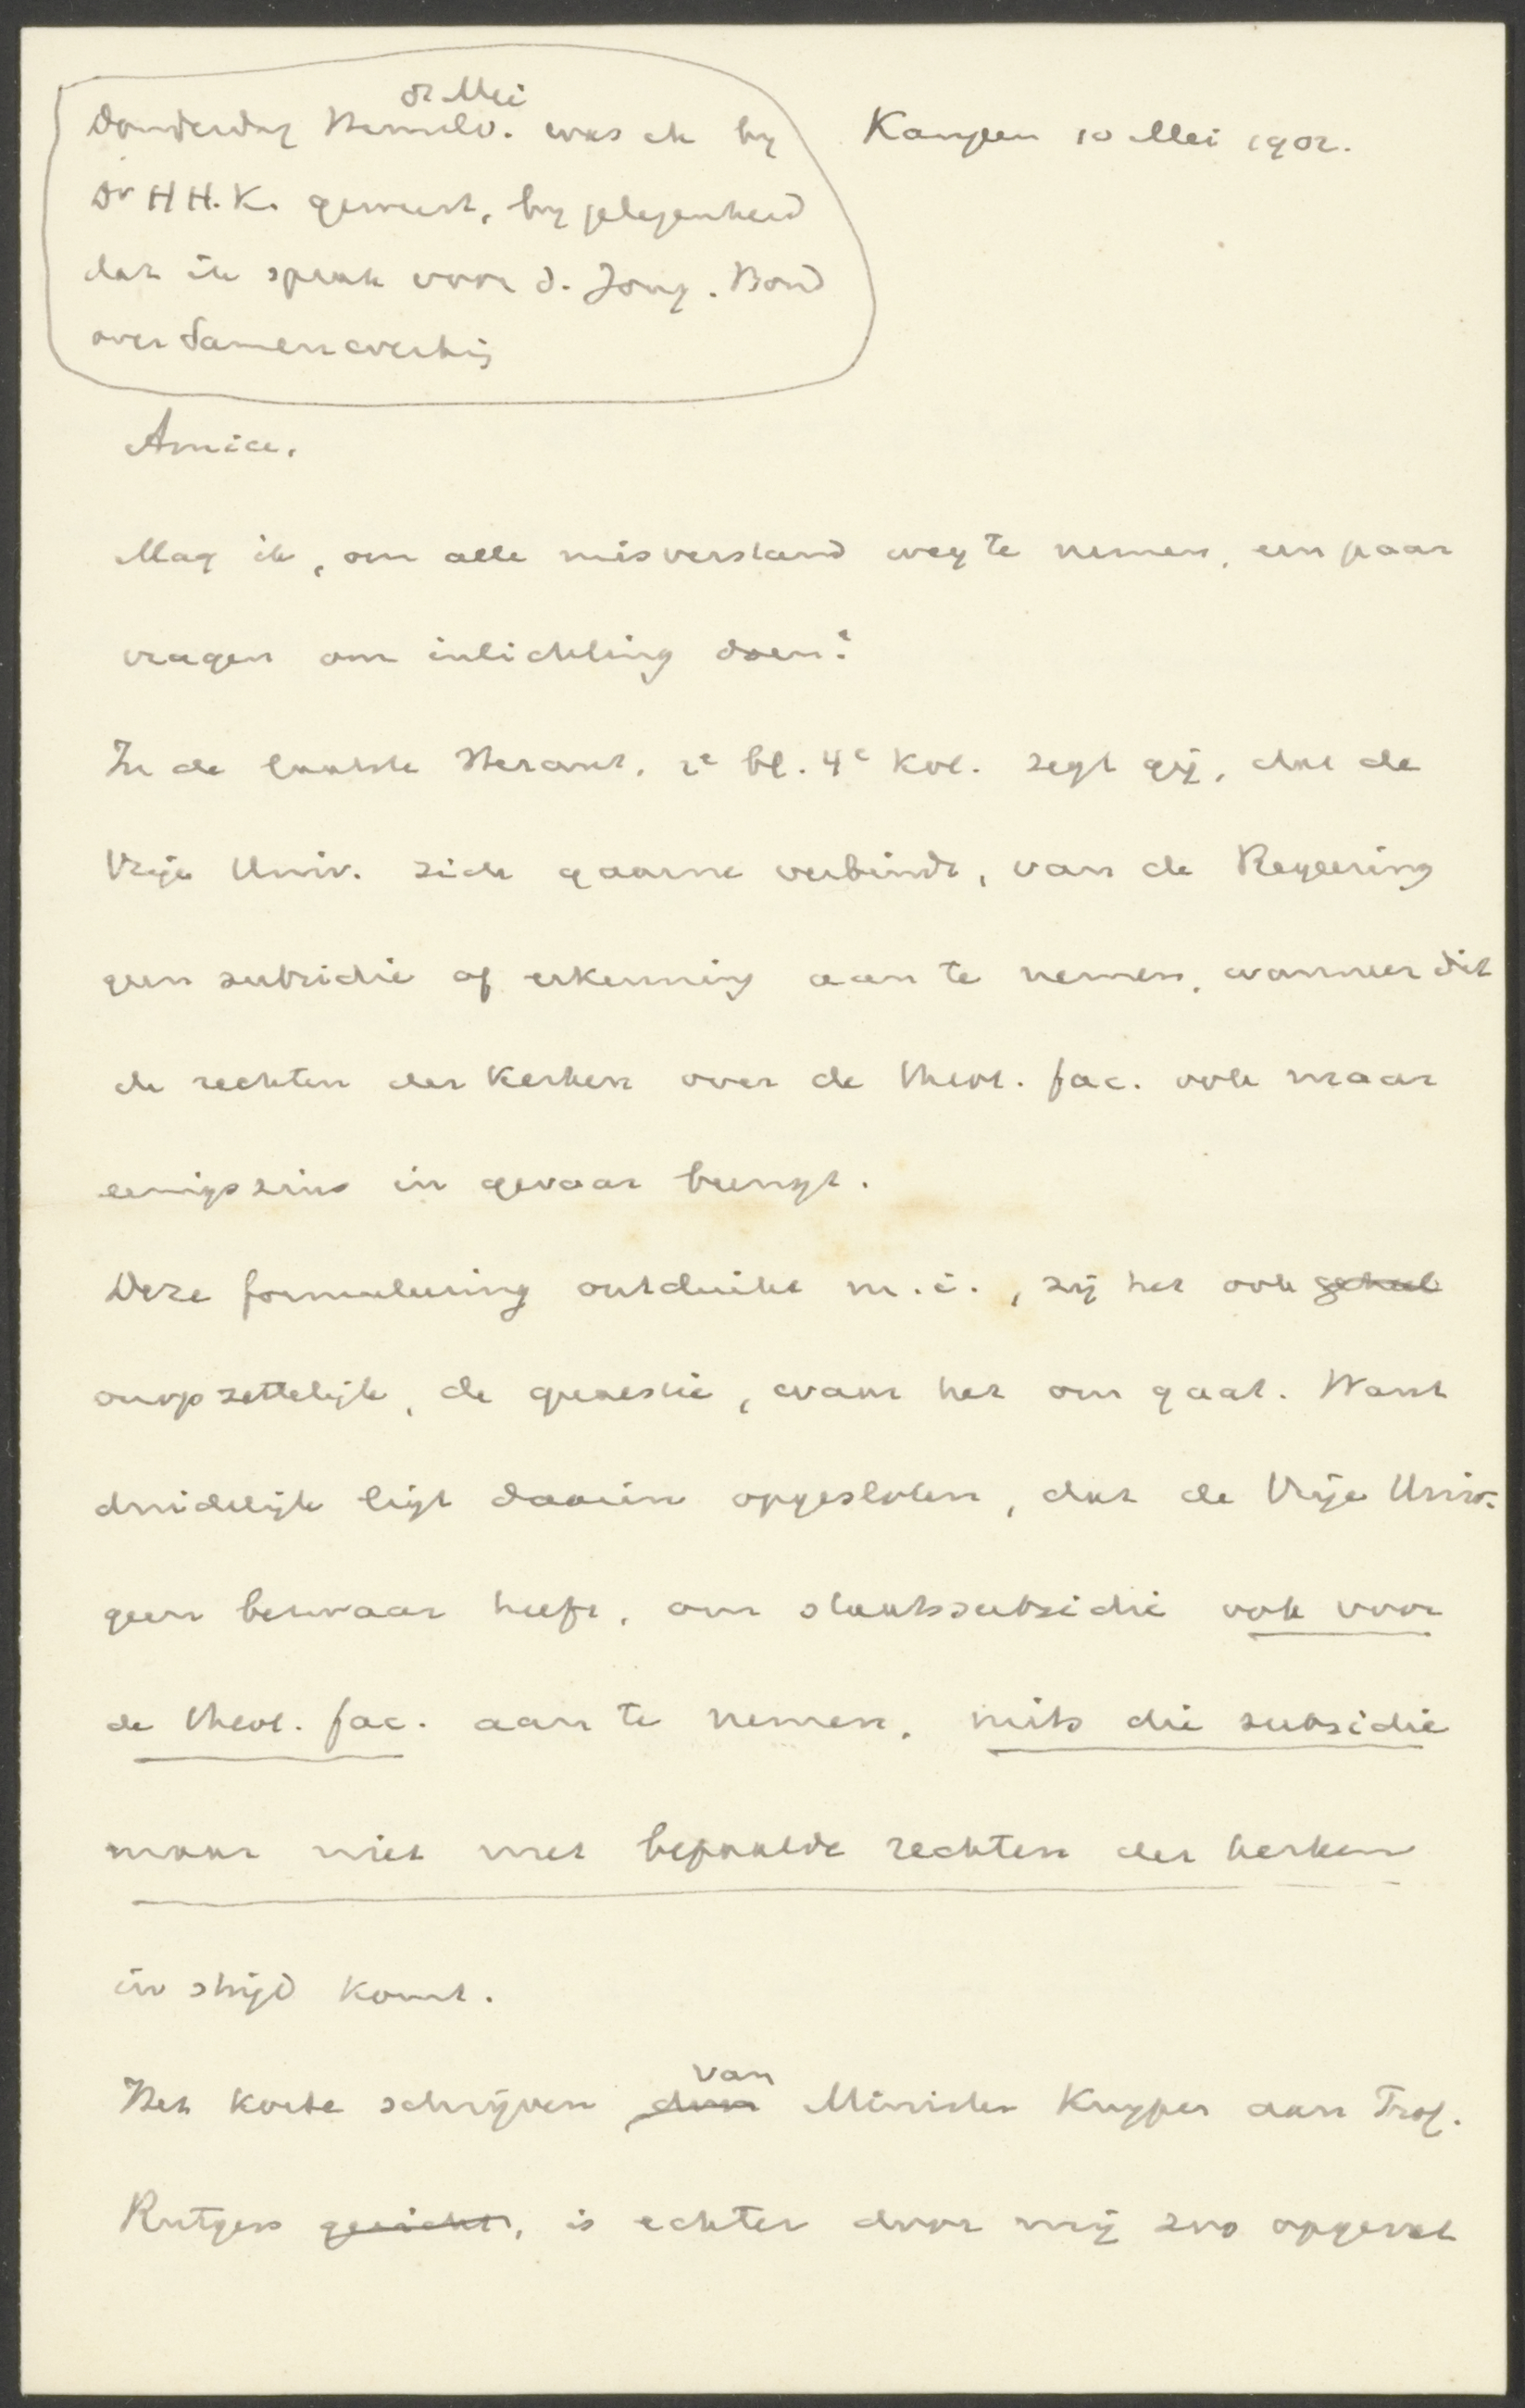 8 Mei
Donderdag Hemelv. was ik by
Dr H H. K. geweest, by gelegenheid
dat ik sprak voor d. Jong. Bond
over Samenwerking
Kampen 10 Mei 1902.
Amice,
Mag ik, om alle misverstand weg te nemen, een paar
vragen om inlichting doen?
In de laatste Heraut, 2e bl. 4e kol. zegt gij, dat de
Vrije Univ. zich gaarne verbindt, van de Regeering
geen subsidie of erkenning aan te nemen, wanneer dit
de rechten der kerken over de theol. fac. ook maar
eenigszins in gevaar brengt.
Deze formuleering ontduikt m.i., zij het ook geheel
onopzettelijk, de quaestie, waar het om gaat. Want
duidelijk ligt daarin opgesloten, dat de Vrije Univ.
geen bezwaar heeft, om staatssubsidie ook voor
de theol. fac. aan te nemen, mits die subsidie
maar niet met bepaalde rechten der kerken
in strijd komt.
van
Het korte schrijven door Minister Kuyper aan Prof.
Rutgers gericht, is echter door mij zoo opgevat